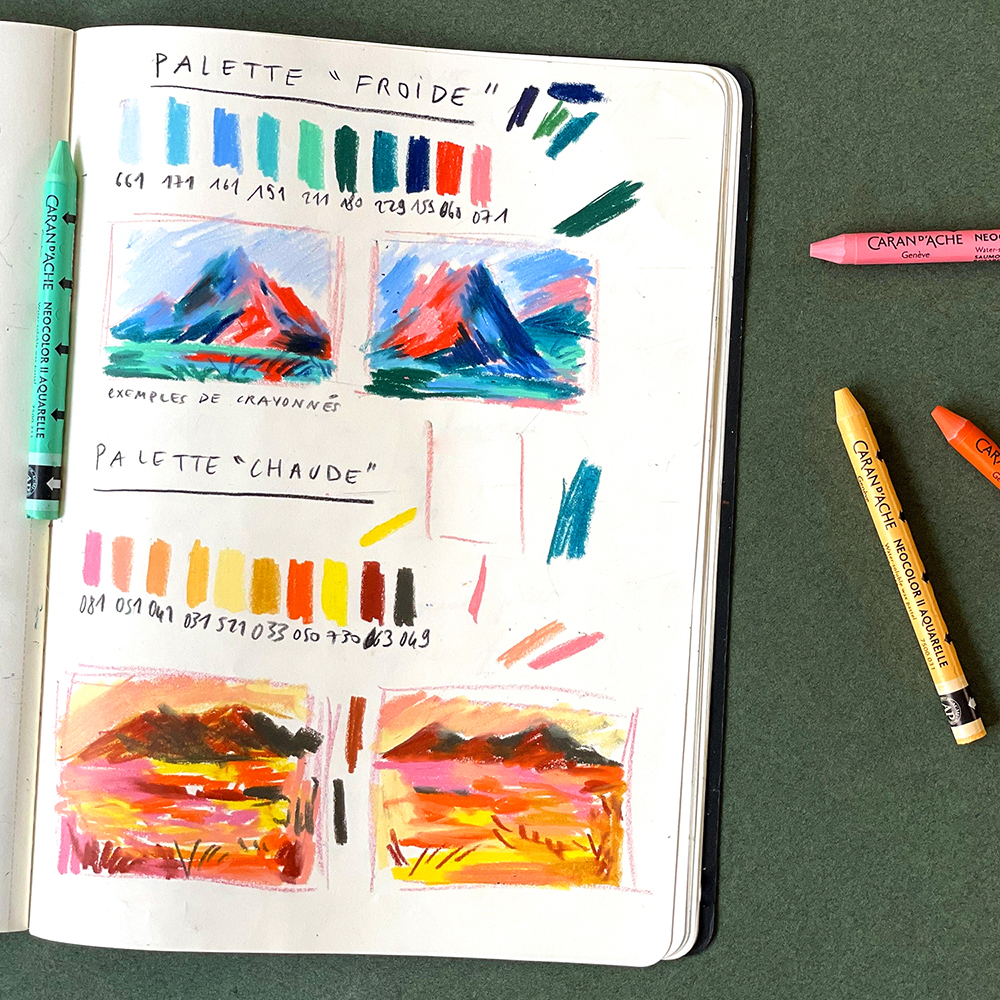 PALETTE "FROIDE"
661 171 161 191 211 180 229 159 060 071
EXEMPLES DE CRAYONNÉS
PALETTE "CHAUDE"
081 051 041 031 521 033 050 730 063 049
CARAN D'ACHE NEOCOLOR II AQUARELLE
CARAN D'ACHE NEOC
Genève Water-s
SAUMO
CARAN D'ACHE NEOCOLOR II AQUARELLE
Water-soluble wax pastel 7500.031
CARAN D'A